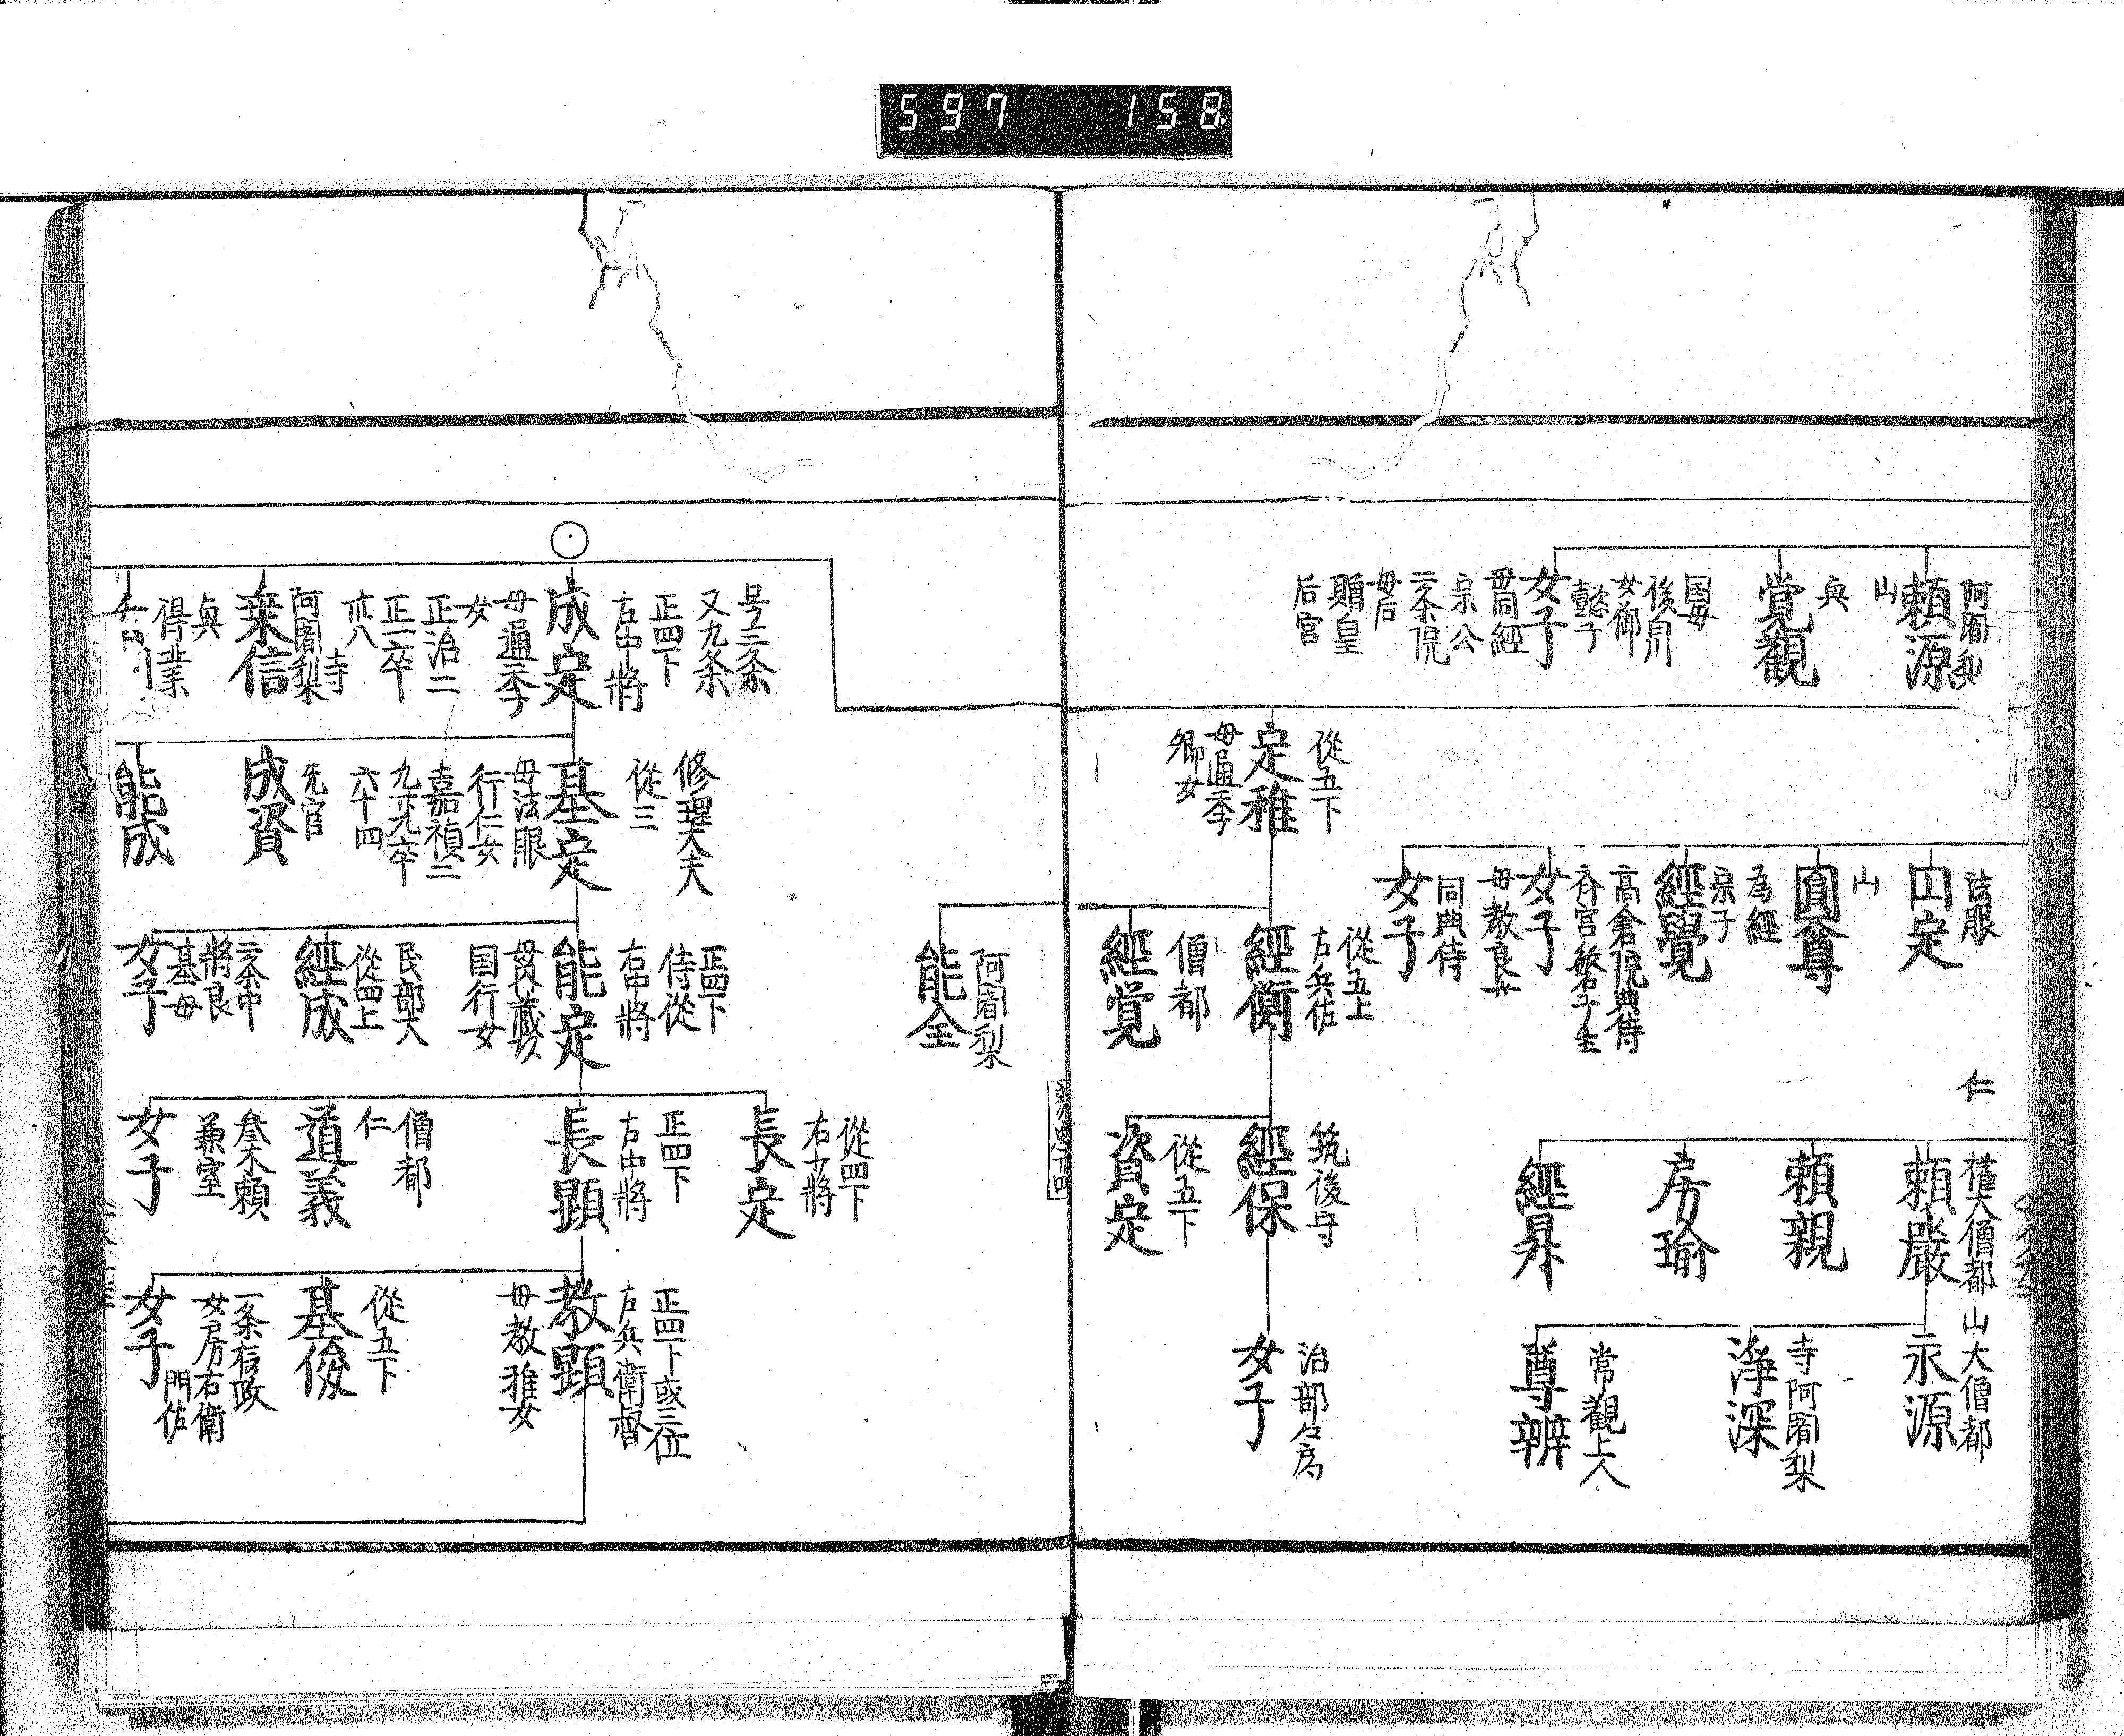 597 158
阿闍梨
頼源
山
覚觀
與
国母
後朱
女御
懿子
女子
母同經
宗公
二条院
母后
贈皇
后宮
從五下
定雅
母通季
卿女
法眼
円定
山
圓尊
為經
宗子
經覺
高倉院典侍
女子
母教良女
同典侍
女子
從五上
右兵佐
經衡
僧都
經覚
仁
權大僧都
頼嚴
頼親
房瑜
經昇
筑後守
經保
從五下
資定
山大僧都
永源
寺阿闍梨
浄深
常觀上人
尊辨
女子
阿闍梨
能全
号三条
又九条
正四下
右中將
成定
母通季
女
正治二
正一卒
廿八
阿闍梨
寺
乗信
與
得業
修理大夫
從三
基定
母法眼
行仁女
嘉禎二
六十四
无官
成資
能成
正四下
侍從
右中將
能定
国行女
民部大
從四上
經成
二条中
將良
基母
女子
從四下
右中將
長定
正四下
右中將
長顕
僧都
仁
道義
参木頼
兼室
女子
正四下或三位
右兵衛督
教顕
母教雅女
從五下
基俊
一条信政
女房右衛
門佐
女子